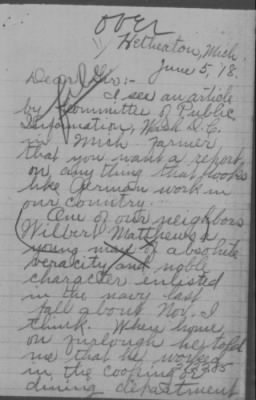 over
Hetherton, Mich.
June 5, '18.
Dear Sir:-
I see an article
by Committee of Public
Information, Wash D.C.
in Mich Farmer,
that you want a report
on any thing that looks
like German work in
our country.
One of our neighbors
(Wilbert Matthews a
young man of absolute
veracity and noble
character enlisted
in the navy last
fall about Nov. I
think. When home
on furlough he told
me that he worked
in the cooking or
dining department